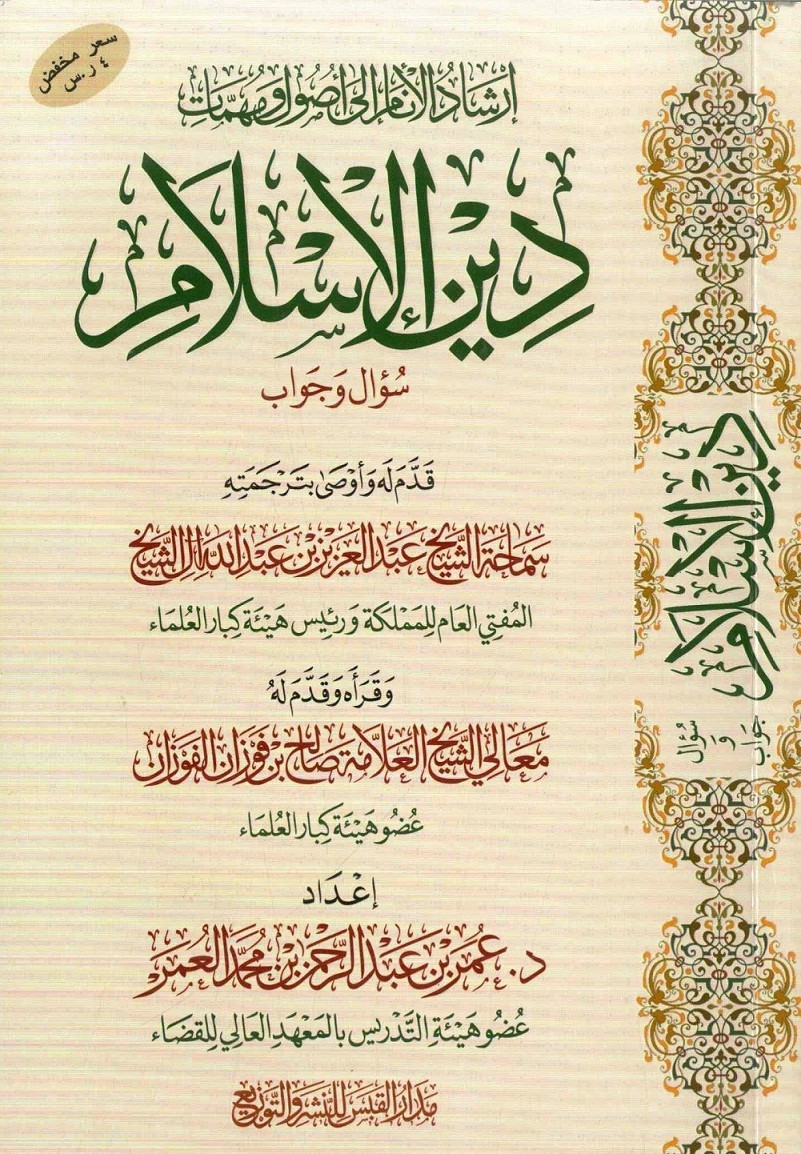 سعر مخفض
٤ ر.س
إرشاد الأنام إلى أصول ومهمات
دِين الإسْلَامِ
سُؤال وَجَوَاب
قَدَّمَ لَهُ وَأوْصَىٰ بتَرْجَمَتِهِ
سَمَاحَة الشَّيْخ عَبْد العَزيْز بْن عَبْد اللَّه آل الشَّيْخ
المُفْتِي العَام لِلمَمْلَكَة وَرئِيس هَيْئَة كِبَار العُلمَاء
وَقَرَأَه وَقَدَّمَ لَهُ
مَعَالي الشَّيْخ العَلَّامَة صَالح بْن فَوْزَان الفَوْزَان
عُضُو هَيْئَة كِبَار العُلمَاء
إعْدَاد
د. عُمَر بْن عَبْد الرَّحْمٰن بْن مُحَمَّد العُمَر
عُضُو هَيْئَةِ التَّدْريْس بالمَعْهَدِ العَالِي لِلقَضَاء
مَدَار القَبَس للنَّشْر وَالتَّوْزيْع
دِين الإسْلَامِ
سُؤال
وَ
جَوَاب